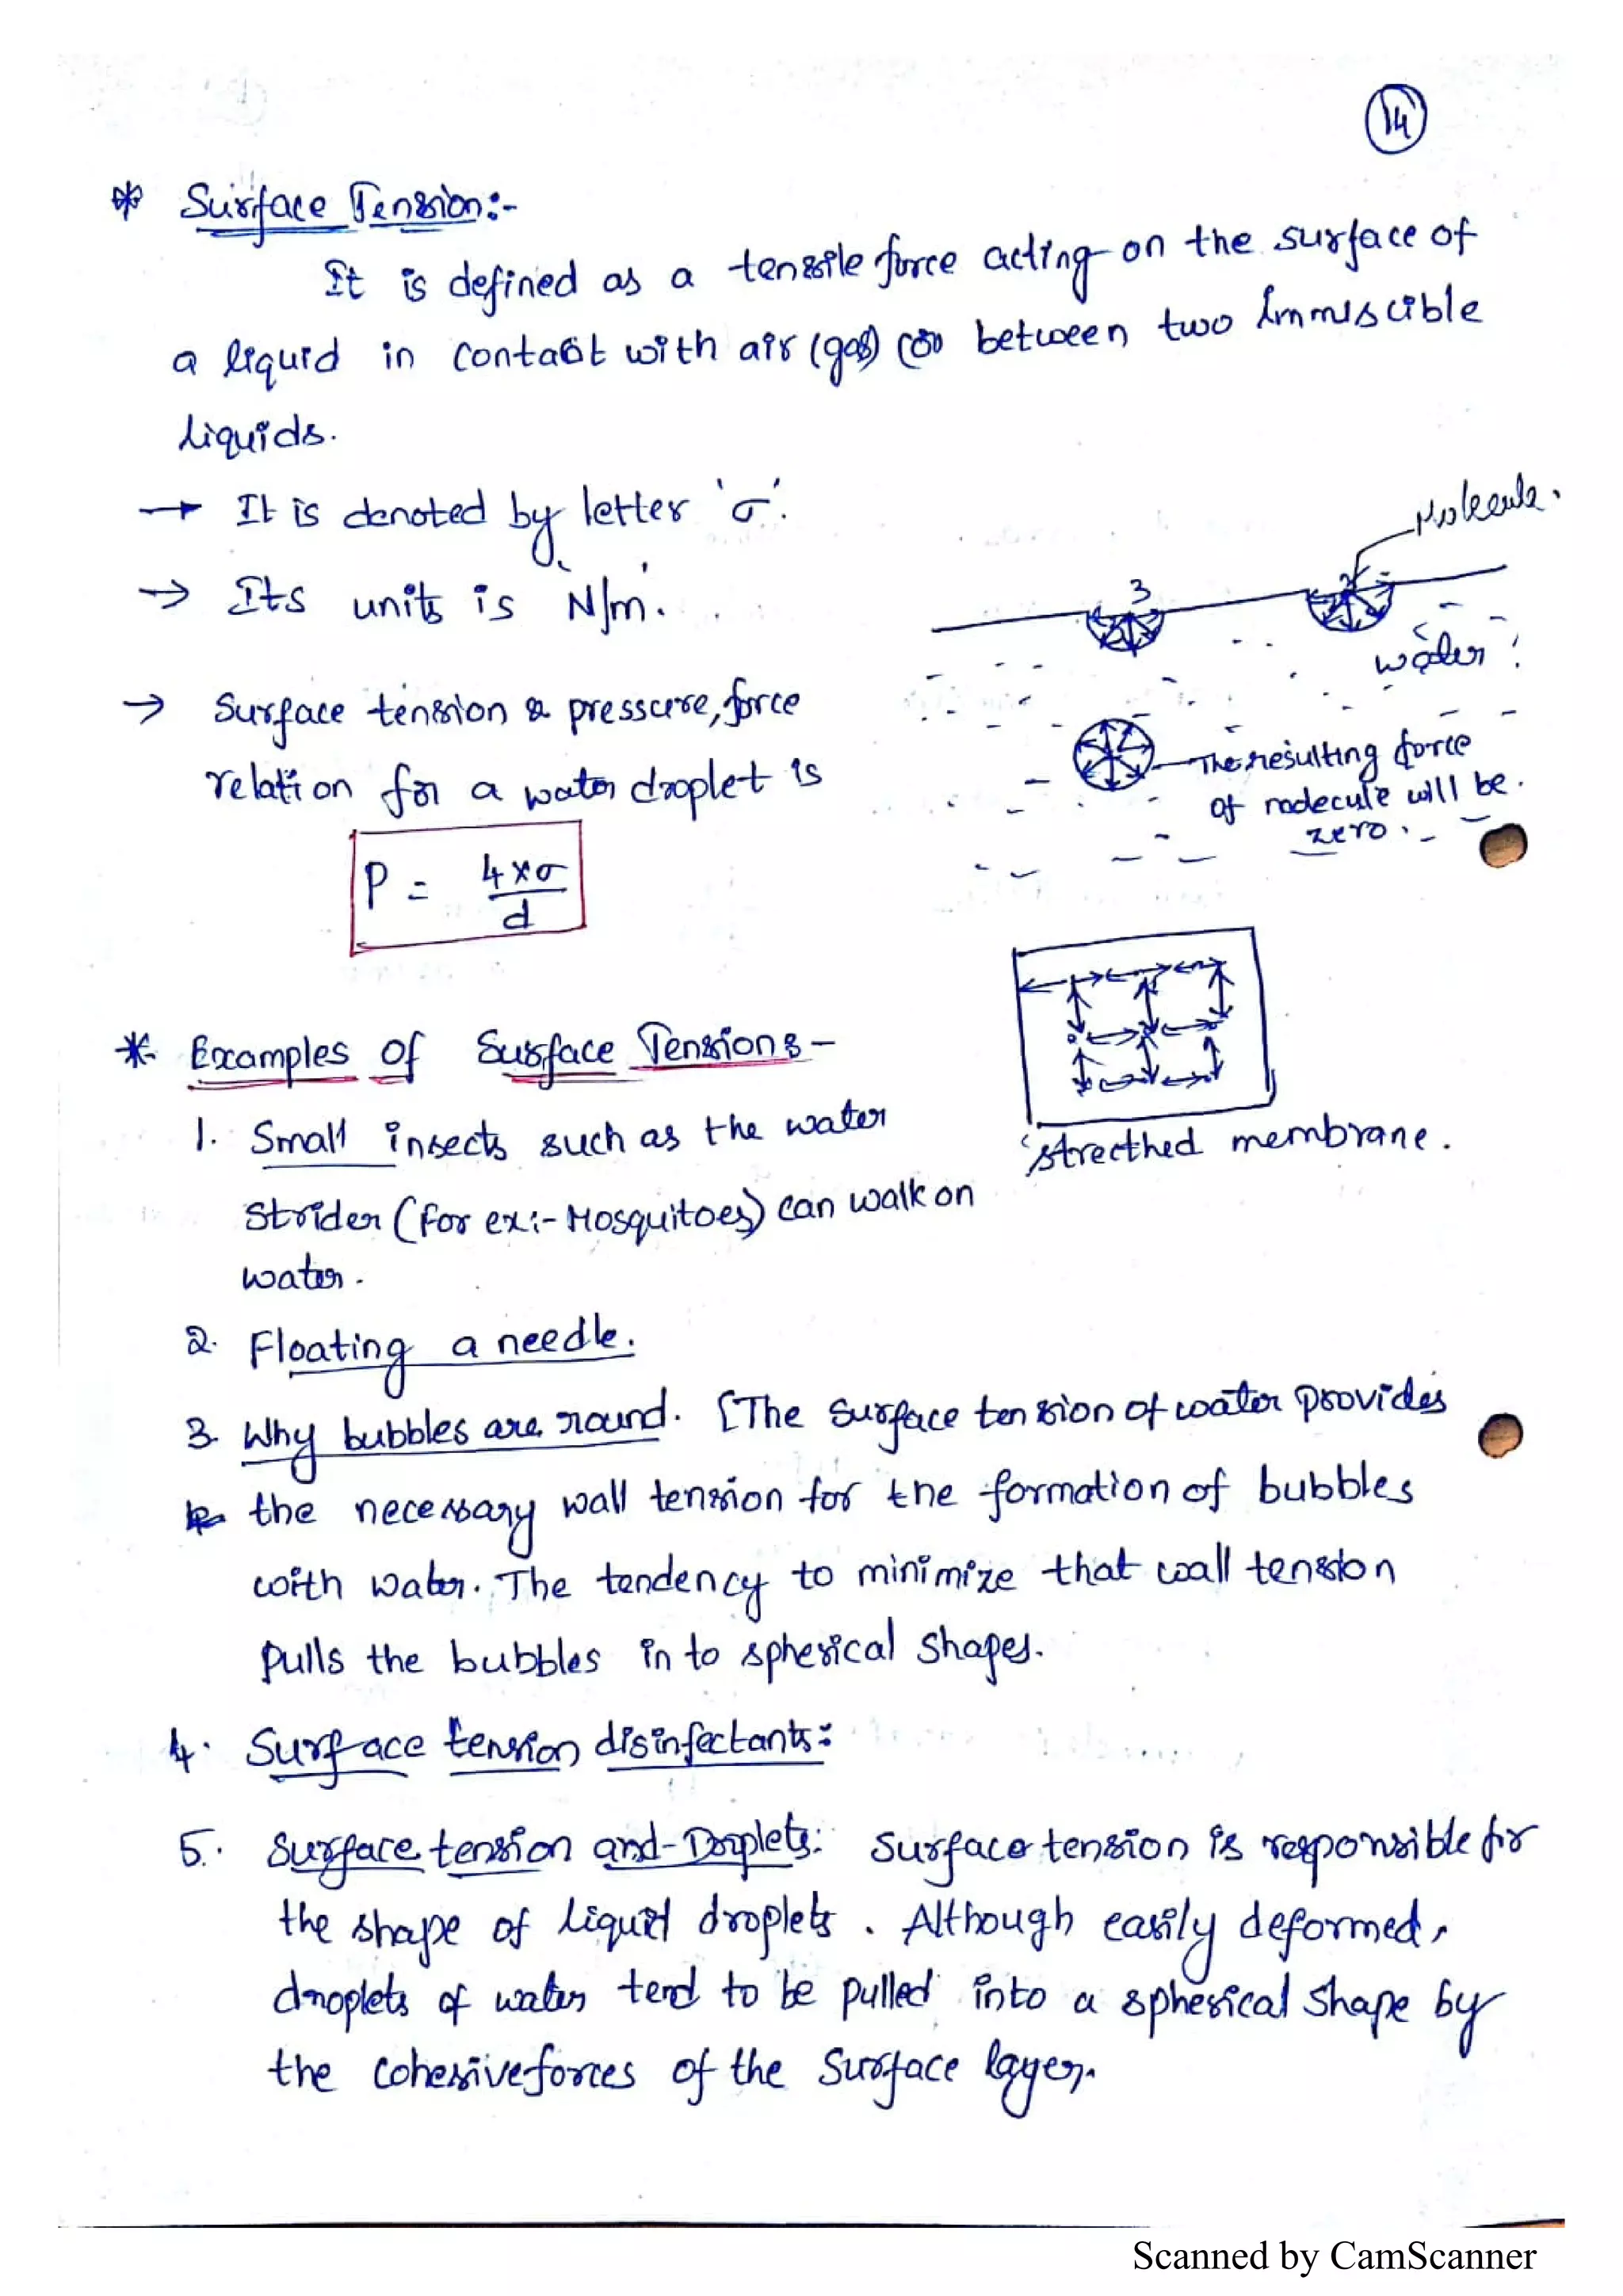 14
* Surface Tension:-
It is defined as a tensile force acting on the surface of
a liquid in contact with air (gas) (or) between two immiscible
liquids.
→ It is denoted by letter 'σ'.
→ Its units is 'N/m'.
→ Surface tension & pressure, force
relation for a water droplet is
P = 4×σ/d
Molecule.
3
water
The resulting force
of molecule will be
zero.
stretched membrane.
* Examples of Surface Tension:-
1. Small insects such as the water
strider (for ex:- Mosquitoes) can walk on
water.
2. Floating a needle.
3. Why bubbles are round. [The surface tension of water provides
the necessary wall tension for the formation of bubbles
with water. The tendency to minimize that wall tension
pulls the bubbles in to spherical shapes.
4. Surface tension disinfectants:
5. Surface tension and Droplets: Surface tension is responsible for
the shape of liquid droplets. Although easily deformed,
droplets of water tend to be pulled into a spherical shape by
the cohesive forces of the surface layer.
Scanned by CamScanner